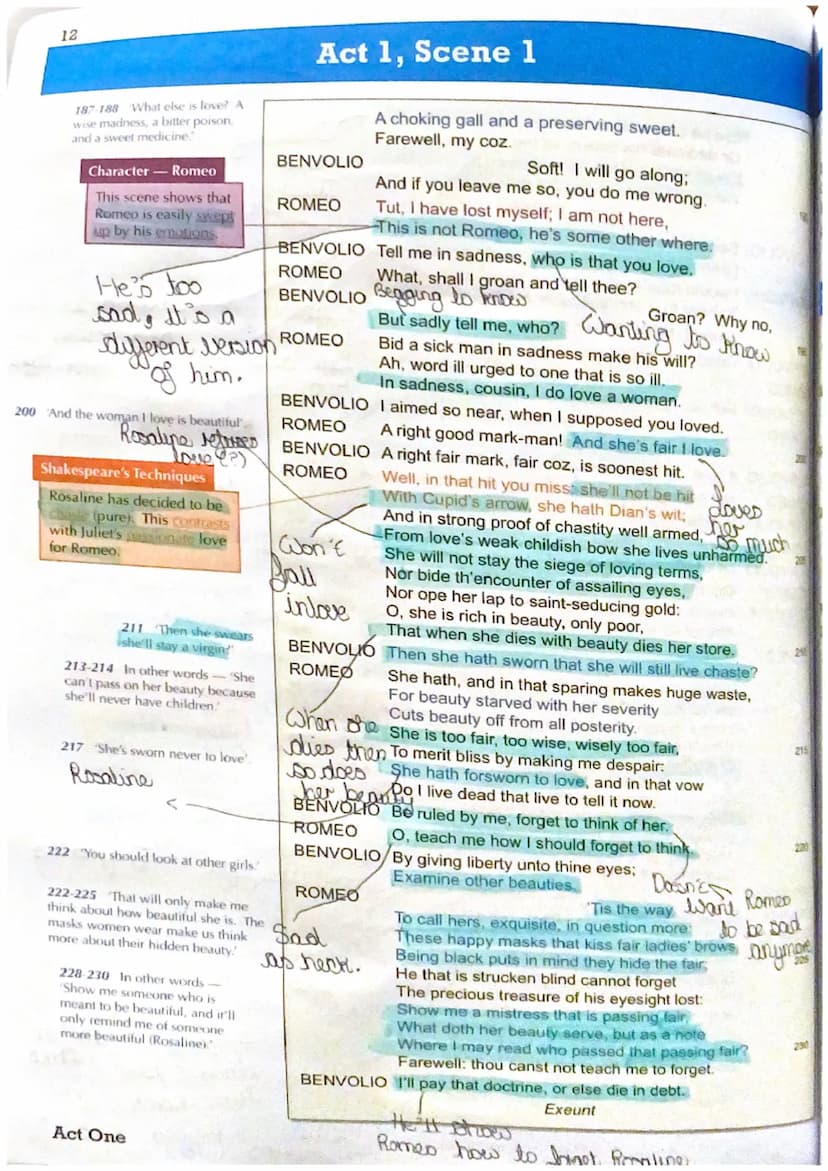 12
Act 1, Scene 1
187-188 'What else is love? A
wise madness, a bitter poison,
and a sweet medicine.'
Character — Romeo
This scene shows that
Romeo is easily swept
up by his emotions.
He's too
sad, it's a
different version
of him.
200 'And the woman I love is beautiful'
Rosaline refuses
love (?)
Shakespeare's Techniques
Rosaline has decided to be
chaste (pure). This contrasts
with Juliet's passionate love
for Romeo.
Won't
fall
in love
211 'Then she swears
she'll stay a virgin?'
213-214 In other words — 'She
can't pass on her beauty because
she'll never have children.'
When she
dies then
so does
her beauty
217 'She's sworn never to love'.
Rosaline
222 'You should look at other girls.'
222-225 'That will only make me
think about how beautiful she is. The
masks women wear make us think
more about their hidden beauty.'
Sad
as heck.
228-230 In other words —
'Show me someone who is
meant to be beautiful, and it'll
only remind me of someone
more beautiful (Rosaline).'
A choking gall and a preserving sweet.
Farewell, my coz.
BENVOLIO Soft! I will go along;
And if you leave me so, you do me wrong.
ROMEO Tut, I have lost myself; I am not here,
This is not Romeo, he's some other where.
BENVOLIO Tell me in sadness, who is that you love.
ROMEO What, shall I groan and tell thee?
BENVOLIO Groan? Why no,
Begging to know
But sadly tell me, who?
Wanting to know
ROMEO Bid a sick man in sadness make his will?
Ah, word ill urged to one that is so ill.
In sadness, cousin, I do love a woman.
BENVOLIO I aimed so near, when I supposed you loved.
ROMEO A right good mark-man! And she's fair I love.
BENVOLIO A right fair mark, fair coz, is soonest hit.
ROMEO Well, in that hit you miss: she'll not be hit
With Cupid's arrow, she hath Dian's wit;
loves
her
so much
And in strong proof of chastity well armed,
From love's weak childish bow she lives unharmed.
She will not stay the siege of loving terms,
205
Nor bide th'encounter of assailing eyes,
Nor ope her lap to saint-seducing gold:
O, she is rich in beauty, only poor,
That when she dies with beauty dies her store.
210
BENVOLIO Then she hath sworn that she will still live chaste?
ROMEO She hath, and in that sparing makes huge waste,
For beauty starved with her severity
Cuts beauty off from all posterity.
She is too fair, too wise, wisely too fair,
215
To merit bliss by making me despair:
She hath forsworn to love, and in that vow
Do I live dead that live to tell it now.
BENVOLIO Be ruled by me, forget to think of her.
ROMEO O, teach me how I should forget to think.
220
BENVOLIO By giving liberty unto thine eyes;
Examine other beauties.
Doesn't
want Romeo
to be sad
anymore
ROMEO 'Tis the way
To call hers, exquisite, in question more:
These happy masks that kiss fair ladies' brows
Being black puts in mind they hide the fair;
225
He that is strucken blind cannot forget
The precious treasure of his eyesight lost:
Show me a mistress that is passing fair,
What doth her beauty serve, but as a note
Where I may read who passed that passing fair?
230
Farewell: thou canst not teach me to forget.
BENVOLIO I'll pay that doctrine, or else die in debt.
Exeunt
He'll show
Romeo how to forget Rosaline
Act One